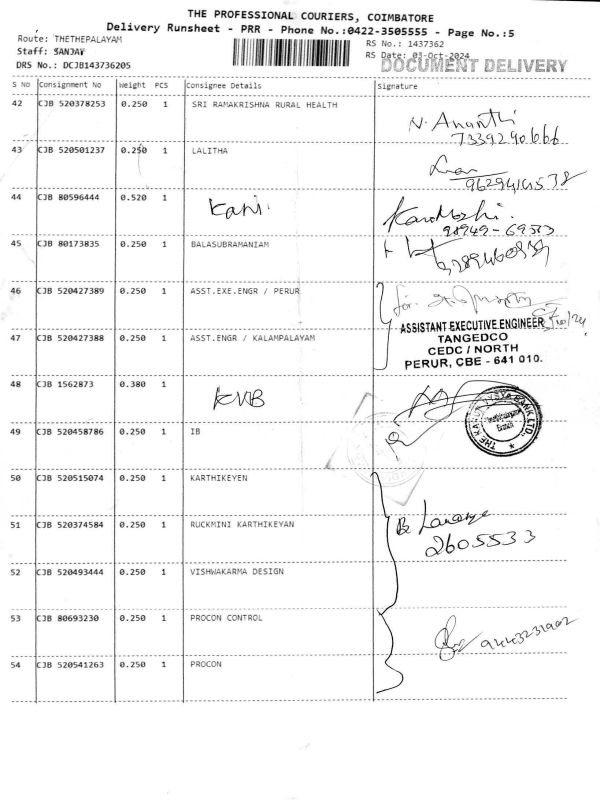 THE PROFESSIONAL COURIERS, COIMBATORE
Delivery Runsheet - PRR - Phone No.:0422-3505555 - Page No.:5
Route: THETHEPALAYAM
RS No.: 1437362
Staff: SANJAY
RS Date: 03-Oct-2024
DRS No.: DCJB143736205
DOCUMENT DELIVERY
S No Consignment No Weight PCS Consignee Details Signature
42 CJB 520378253 0.250 1 SRI RAMAKRISHNA RURAL HEALTH
N. Ananthi
7339290666
43 CJB 520501237 0.250 1 LALITHA
44 CJB 80596444 0.520 1 Kani.
98949-69513
45 CJB 80173835 0.250 1 BALASUBRAMANIAM
46 CJB 520427389 0.250 1 ASST.EXE.ENGR / PERUR
for.
ASSISTANT EXECUTIVE ENGINEER
TANGEDCO
CEDC / NORTH
PERUR, CBE - 641 010.
47 CJB 520427388 0.250 1 ASST.ENGR / KALAMPALAYAM
48 CJB 1562873 0.380 1 KVB
THE KARUR VYSYA BANK LTD.
Branch
49 CJB 520458786 0.250 1 IB
50 CJB 520515074 0.250 1 KARTHIKEYEN
51 CJB 520374584 0.250 1 RUCKMINI KARTHIKEYAN
2605533
52 CJB 520493444 0.250 1 VISHWAKARMA DESIGN
53 CJB 80693230 0.250 1 PROCON CONTROL
9443231902
54 CJB 520541263 0.250 1 PROCON